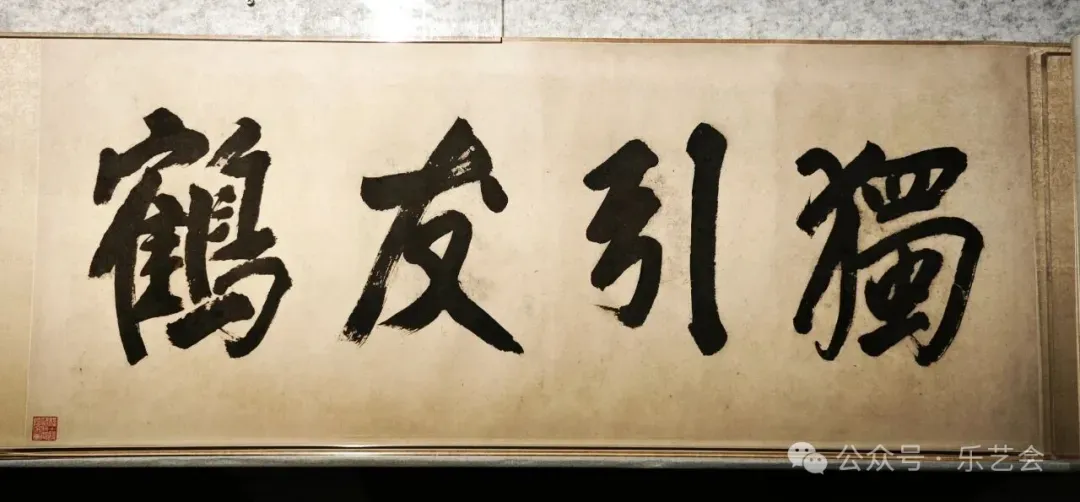 獨引友鶴
公众号·乐艺会